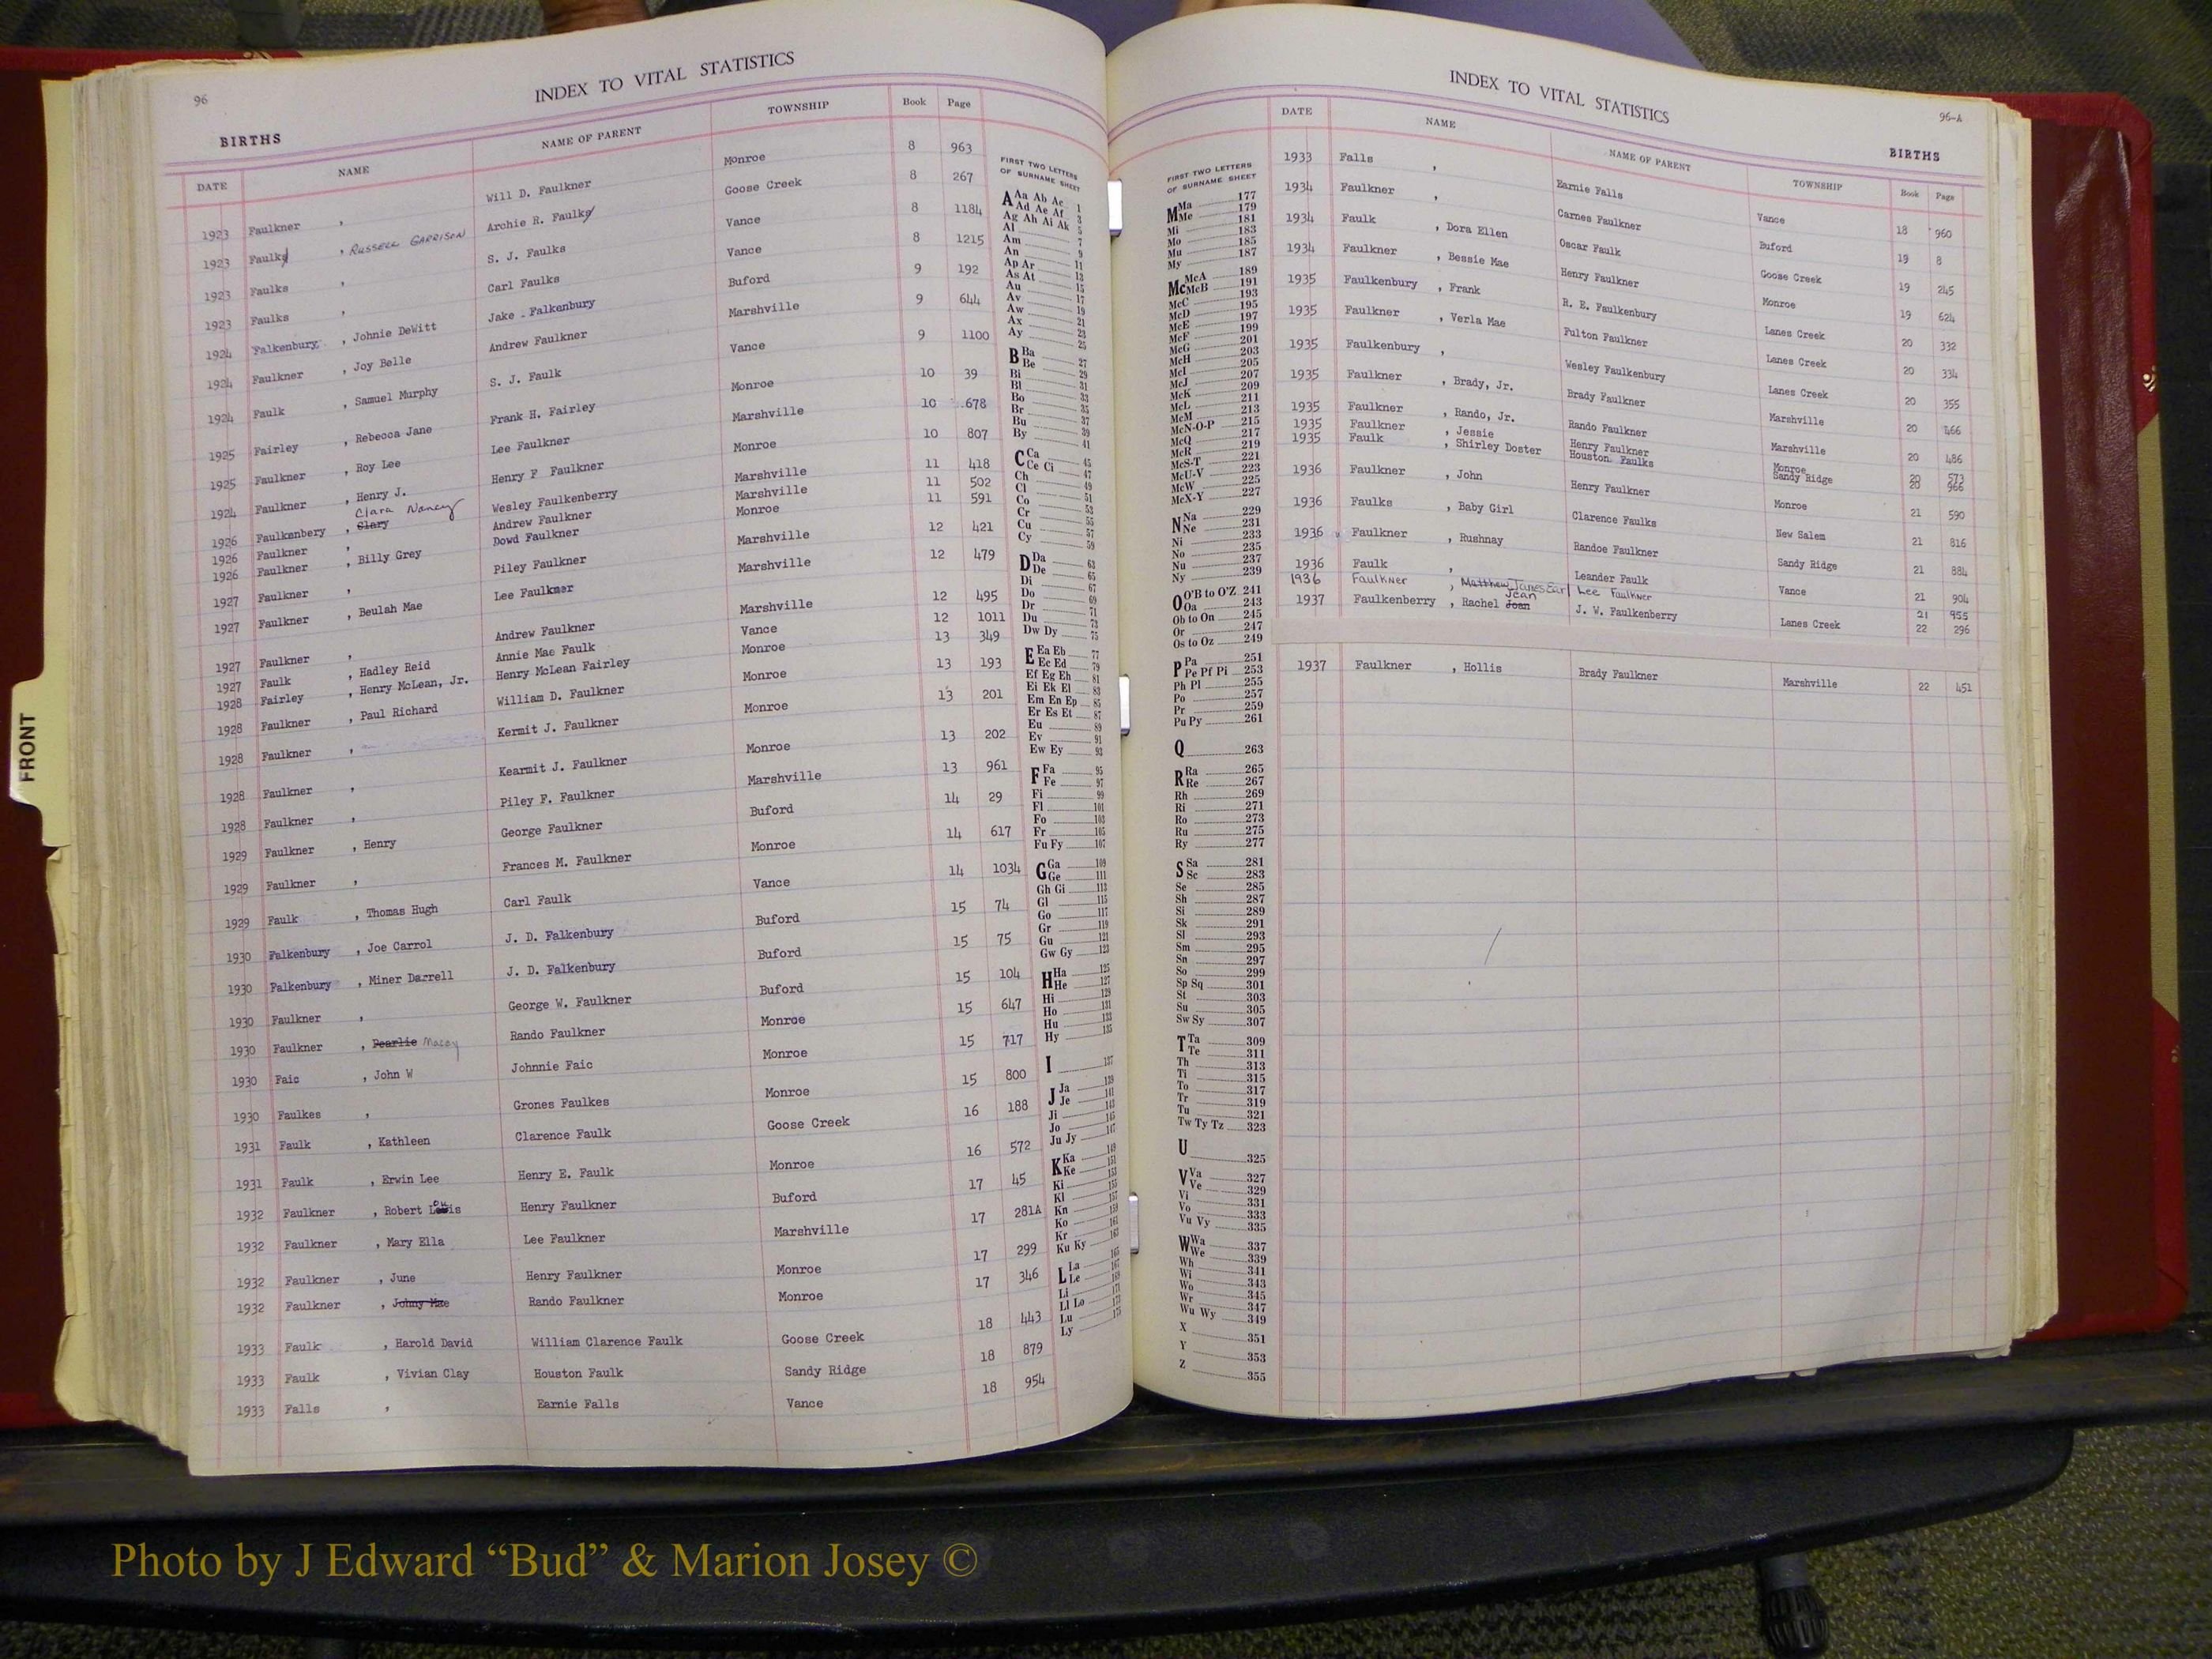 FRONT
96
INDEX TO VITAL STATISTICS
BIRTHS
DATE NAME NAME OF PARENT TOWNSHIP Book Page
1923 Faulkner , Will D. Faulkner Monroe 8 963
1923 Faulk , RUSSELL GARRISON Archie R. Faulk Goose Creek 8 267
1923 Faulks , S. J. Faulks Vance 8 1184
1923 Faulks , Carl Faulks Vance 8 1215
1924 Falkenbury , Johnie DeWitt Jake Falkenbury Buford 9 192
1924 Faulkner , Joy Belle Andrew Faulkner Marshville 9 644
1924 Faulk , Samuel Murphy S. J. Faulk Vance 9 1100
1925 Fairley , Rebecca Jane Frank H. Fairley Monroe 10 39
1925 Faulkner , Roy Lee Lee Faulkner Marshville 10 678
1924 Faulkner , Henry J. Henry F Faulkner Monroe 10 807
1926 Faulkenbery , Clary Clara Nancy Wesley Faulkenberry Marshville 11 418
1926 Faulkner , Andrew Faulkner Marshville 11 502
1926 Faulkner , Billy Grey Dowd Faulkner Monroe 11 591
1927 Faulkner , Piley Faulkner Marshville 12 421
1927 Faulkner , Beulah Mae Lee Faulkner Marshville 12 479
1927 Faulkner , Andrew Faulkner Marshville 12 495
1927 Faulk , Hadley Reid Annie Mae Faulk Vance 12 1011
1928 Fairley , Henry McLean, Jr. Henry McLean Fairley Monroe 13 349
1928 Faulkner , Paul Richard William D. Faulkner Monroe 13 193
1928 Faulkner , Kermit J. Faulkner Monroe 13 201
1928 Faulkner , Kearmit J. Faulkner Monroe 13 202
1928 Faulkner , Piley F. Faulkner Marshville 13 961
1929 Faulkner , Henry George Faulkner Buford 14 29
1929 Faulkner , Frances M. Faulkner Monroe 14 617
1929 Faulk , Thomas Hugh Carl Faulk Vance 14 1034
1930 Falkenbury , Joe Carrol J. D. Falkenbury Buford 15 74
1930 Falkenbury , Miner Darrell J. D. Falkenbury Buford 15 75
1930 Faulkner , George W. Faulkner Buford 15 104
1930 Faulkner , Pearlie Rando Faulkner Monroe 15 647
1930 Faic , John W Johnnie Faic Monroe 15 717
1930 Faulkes , Grones Faulkes Monroe 15 800
1931 Faulk , Kathleen Clarence Faulk Goose Creek 16 188
1931 Faulk , Erwin Lee Henry E. Faulk Monroe 16 572
1932 Faulkner , Robert Louis Henry Faulkner Buford 17 45
1932 Faulkner , Mary Ella Lee Faulkner Marshville 17 281A
1932 Faulkner , June Henry Faulkner Monroe 17 299
1932 Faulkner , Johny Mae Rando Faulkner Monroe 17 346
1933 Faulk , Harold David William Clarence Faulk Goose Creek 18 443
1933 Faulk , Vivian Clay Houston Faulk Sandy Ridge 18 879
1933 Falls , Earnie Falls Vance 18 954
FIRST TWO LETTERS
OF SURNAME SHEET
A Aa Ab Ac 1
Ad Ae Af 3
Ag Ah Ai Ak 5
Al 7
Am 9
An 11
Ap Ar 13
As At 15
Au 17
Av 19
Aw 21
Ax 23
Ay 25
B Ba 27
Be 29
Bi 31
Bl 33
Bo 35
Br 37
Bu 39
By 41
C Ca 45
Ce Ci 47
Ch 49
Cl 51
Co 53
Cr 55
Cu 57
Cy 59
D Da 63
De 65
Di 67
Do 69
Dr 71
Du 73
Dw Dy 75
E Ea Eb 77
Ec Ed 79
Ef Eg Eh 81
Ei Ek El 83
Em En Ep 85
Er Es Et 87
Eu 89
Ev 91
Ew Ey 93
F Fa 95
Fe 97
Fi 99
Fl 101
Fo 103
Fr 105
Fu Fy 107
G Ga 109
Ge 111
Gh Gi 113
Gl 115
Go 117
Gr 119
Gu 121
Gw Gy 123
H Ha 125
He 127
Hi 129
Ho 131
Hu 133
Hy 135
I 137
J Ja 139
Je 141
Ji 143
Jo 145
Ju Jy 147
K Ka 149
Ke 151
Ki 153
Kl 155
Kn 157
Ko 159
Kr 161
Ku Ky 163
L La 165
Le 167
Li 169
Ll Lo 171
Lu 173
Ly 175
INDEX TO VITAL STATISTICS
96-A
BIRTHS
FIRST TWO LETTERS
OF SURNAME SHEET
M Ma 177
Me 179
Mi 181
Mo 183
Mu 185
My 187
Mc McA 189
McB 191
McC 193
McD 195
McE 197
McF 199
McG 201
McH 203
McI 205
McJ 207
McK 209
McL 211
McM 213
McN-O-P 215
McQ 217
McR 219
McS-T 221
McU-V 223
McW 225
McX-Y 227
N Na 229
Ne 231
Ni 233
No 235
Nu 237
Ny 239
O O'B to O'Z 241
Oa 243
Ob to On 245
Or 247
Os to Oz 249
P Pa 251
Pe Pf Pi 253
Ph Pl 255
Po 257
Pr 259
Pu Py 261
Q 263
R Ra 265
Re 267
Rh 269
Ri 271
Ro 273
Ru 275
Ry 277
S Sa 281
Sc 283
Se 285
Sh 287
Si 289
Sk 291
Sl 293
Sm 295
Sn 297
So 299
Sp Sq 301
St 303
Su 305
Sw Sy 307
T Ta 309
Te 311
Th 313
Ti 315
To 317
Tr 319
Tu 321
Tw Ty Tz 323
U 325
V Va 327
Ve 329
Vi 331
Vo 333
Vu Vy 335
W Wa 337
We 339
Wh 341
Wi 343
Wo 345
Wr 347
Wu Wy 349
X 351
Y 353
Z 355
DATE NAME NAME OF PARENT TOWNSHIP Book Page
1933 Falls , Earnie Falls Vance 18 960
1934 Faulkner , Carnes Faulkner Buford 19 8
1934 Faulk , Dora Ellen Oscar Faulk Goose Creek 19 245
1934 Faulkner , Bessie Mae Henry Faulkner Monroe 19 624
1935 Faulkenbury , Frank R. E. Faulkenbury Lanes Creek 20 332
1935 Faulkner , Verla Mae Fulton Faulkner Lanes Creek 20 334
1935 Faulkenbury , Wesley Faulkenbury Lanes Creek 20 355
1935 Faulkner , Brady, Jr. Brady Faulkner Marshville 20 466
1935 Faulkner , Rando, Jr. Rando Faulkner Marshville 20 486
1935 Faulkner , Jessie Henry Faulkner Monroe 20 573
1935 Faulk , Shirley Doster Houston Faulks Sandy Ridge 20 966
1936 Faulkner , John Henry Faulkner Monroe 21 590
1936 Faulks , Baby Girl Clarence Faulks New Salem 21 816
1936 Faulkner , Rushnay Randoe Faulkner Sandy Ridge 21 884
1936 Faulk , Leander Faulk Vance 21 904
1936 Faulkner , Matthew James Earl Lee Faulkner 21 955
1937 Faulkenberry , Rachel Joan Jean J. W. Faulkenberry Lanes Creek 22 296
1937 Faulkner , Hollis Brady Faulkner Marshville 22 451
Photo by J Edward “Bud” & Marion Josey ©